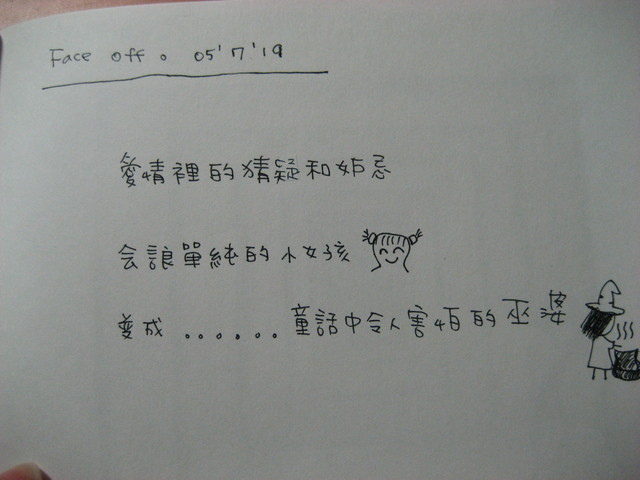 Face off。 05'7'19
愛情裡的猜疑和妒忌
会讓單純的小女孩
變成......童話中令人害怕的巫婆